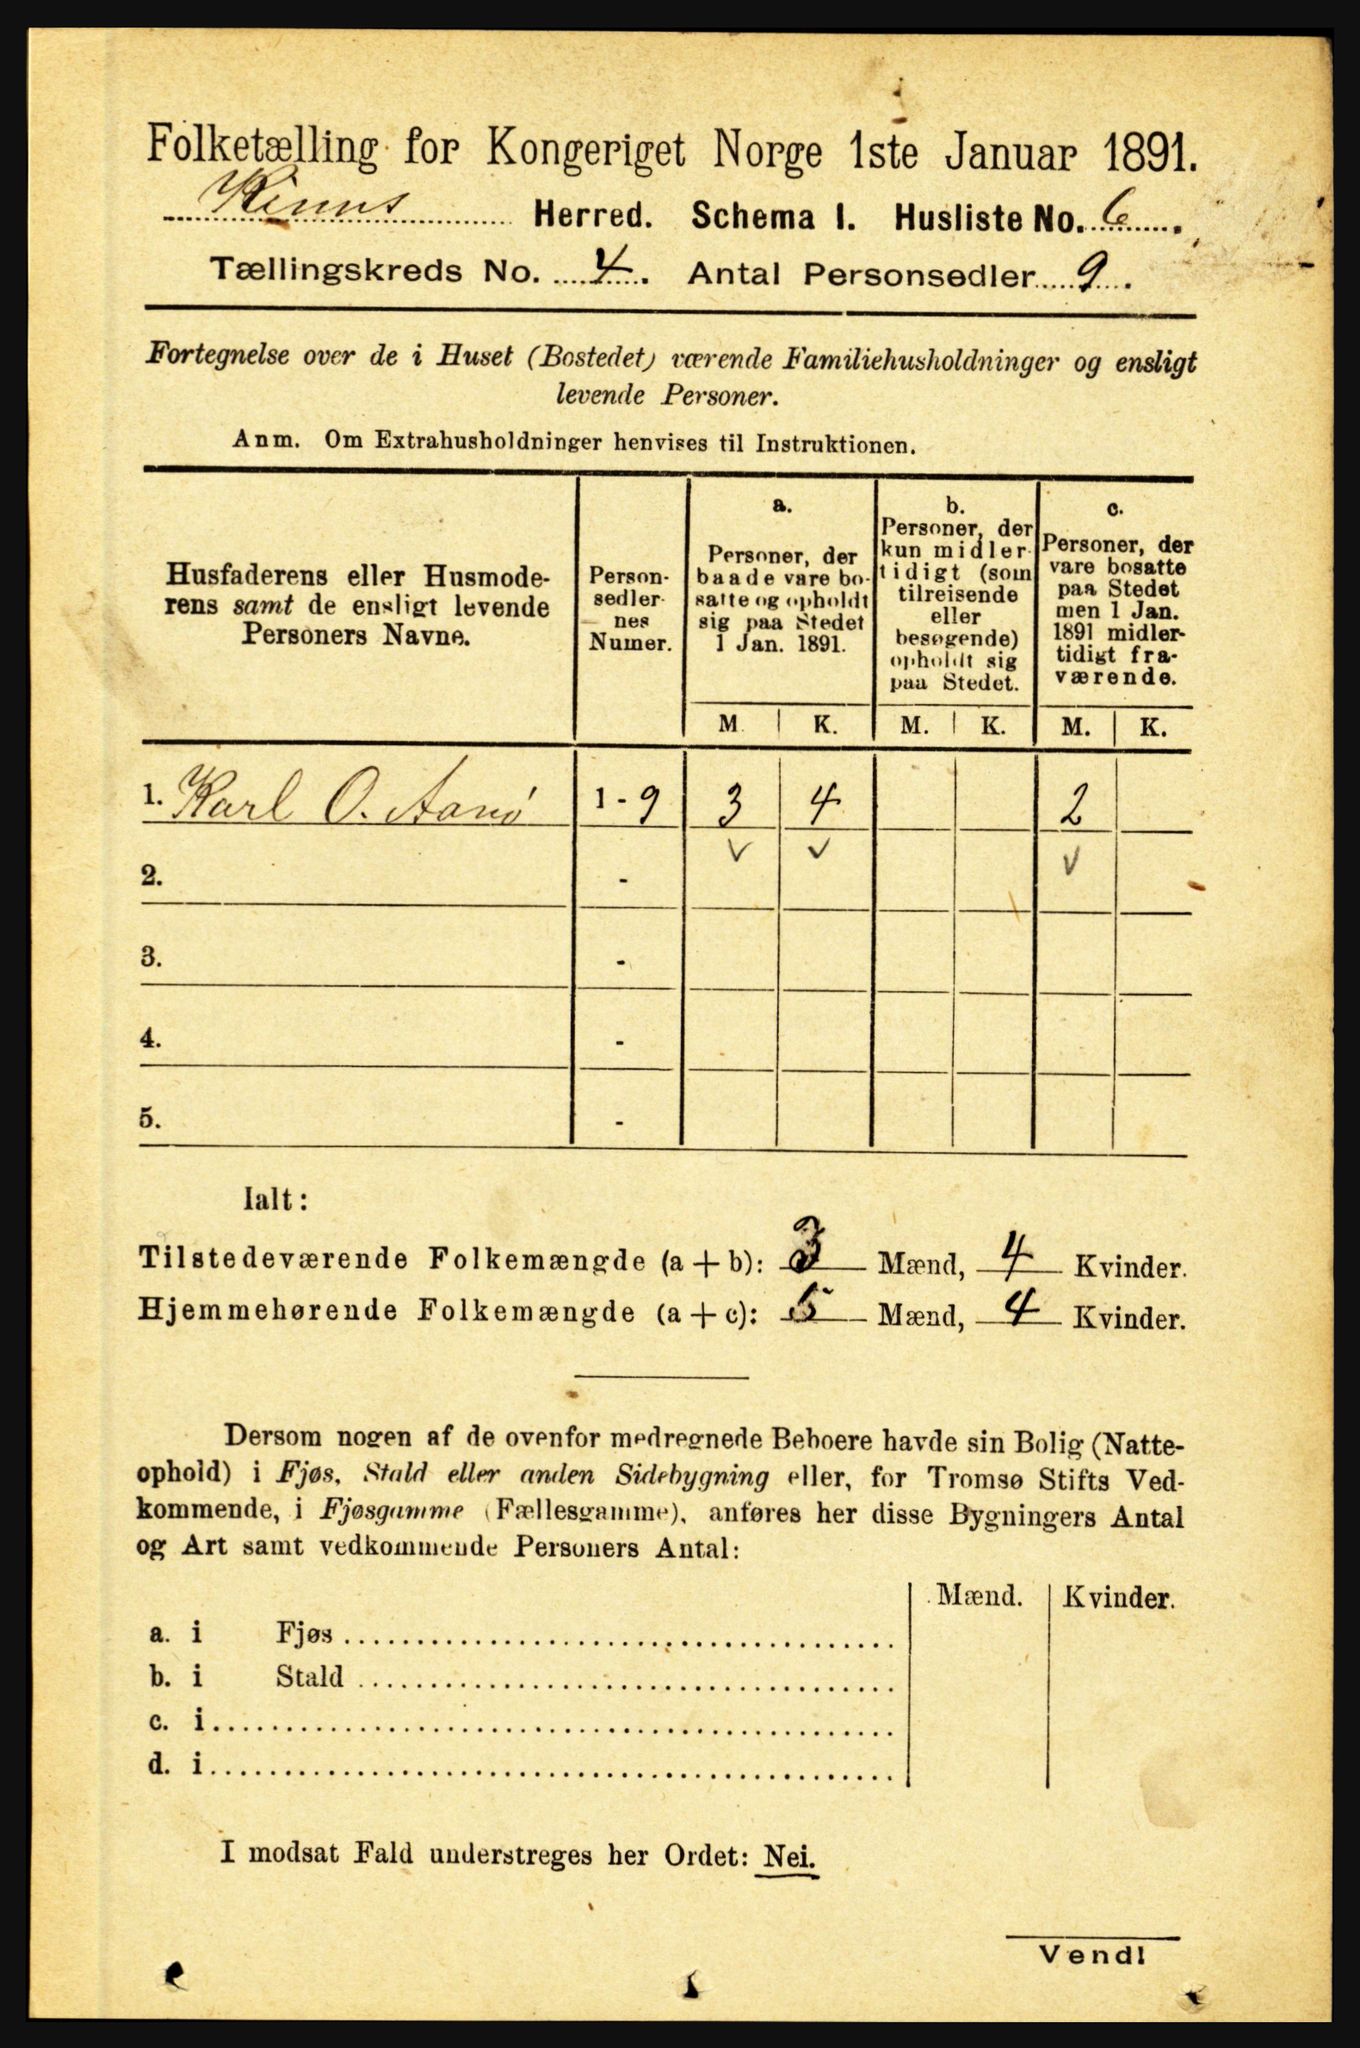 Folketælling for Kongeriget Norge 1ste Januar 1891.
Kinns Herred. Schema I. Husliste No. 6.
Tællingskreds No. 4. Antal Personsedler 9.
Fortegnelse over de i Huset (Bostedet) værende Familiehusholdninger og ensligt
levende Personer.
Anm. Om Extrahusholdninger henvises til Instruktionen.
Husfaderens eller Husmode-
rens samt de ensligt levende
Personers Navne.
Person-
sedler-
nes
Numer.
a.
Personer, der
baade vare bo-
satte og opholdt
sig paa Stedet
1 Jan. 1891.
b.
Personer, der
kun midler-
tidigt (som
tilreisende
eller
besøgende)
opholdt sig
paa Stedet.
c.
Personer, der
vare bosatte
paa Stedet
men 1 Jan.
1891 midler-
tidigt fra-
værende.
M. K. M. K. M. K.
1. Karl O. Aanø 1 - 9 3 4 2
2. -
3. -
4. -
5. -
Ialt:
Tilstedeværende Folkemængde (a + b): 3 Mænd, 4 Kvinder.
Hjemmehørende Folkemængde (a + c): 5 Mænd, 4 Kvinder.
Dersom nogen af de ovenfor medregnede Beboere havde sin Bolig (Natte-
ophold) i Fjøs, Stald eller anden Sidebygning eller, for Tromsø Stifts Ved-
kommende, i Fjøsgamme (Fællesgamme), anføres her disse Bygningers Antal
og Art samt vedkommende Personers Antal:
Mænd. Kvinder.
a. i Fjøs
b. i Stald
c. i
d. i
I modsat Fald understreges her Ordet: Nei.
Vend!